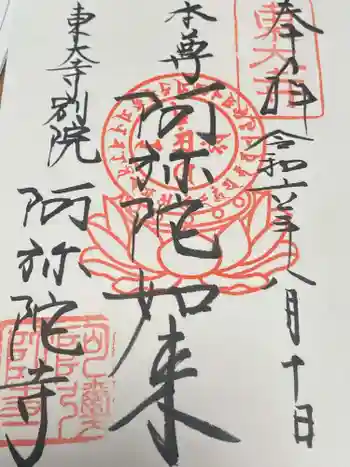 奉拝
令和六年八月十日
本尊
阿弥陀如来
東大寺別院
阿弥陀寺